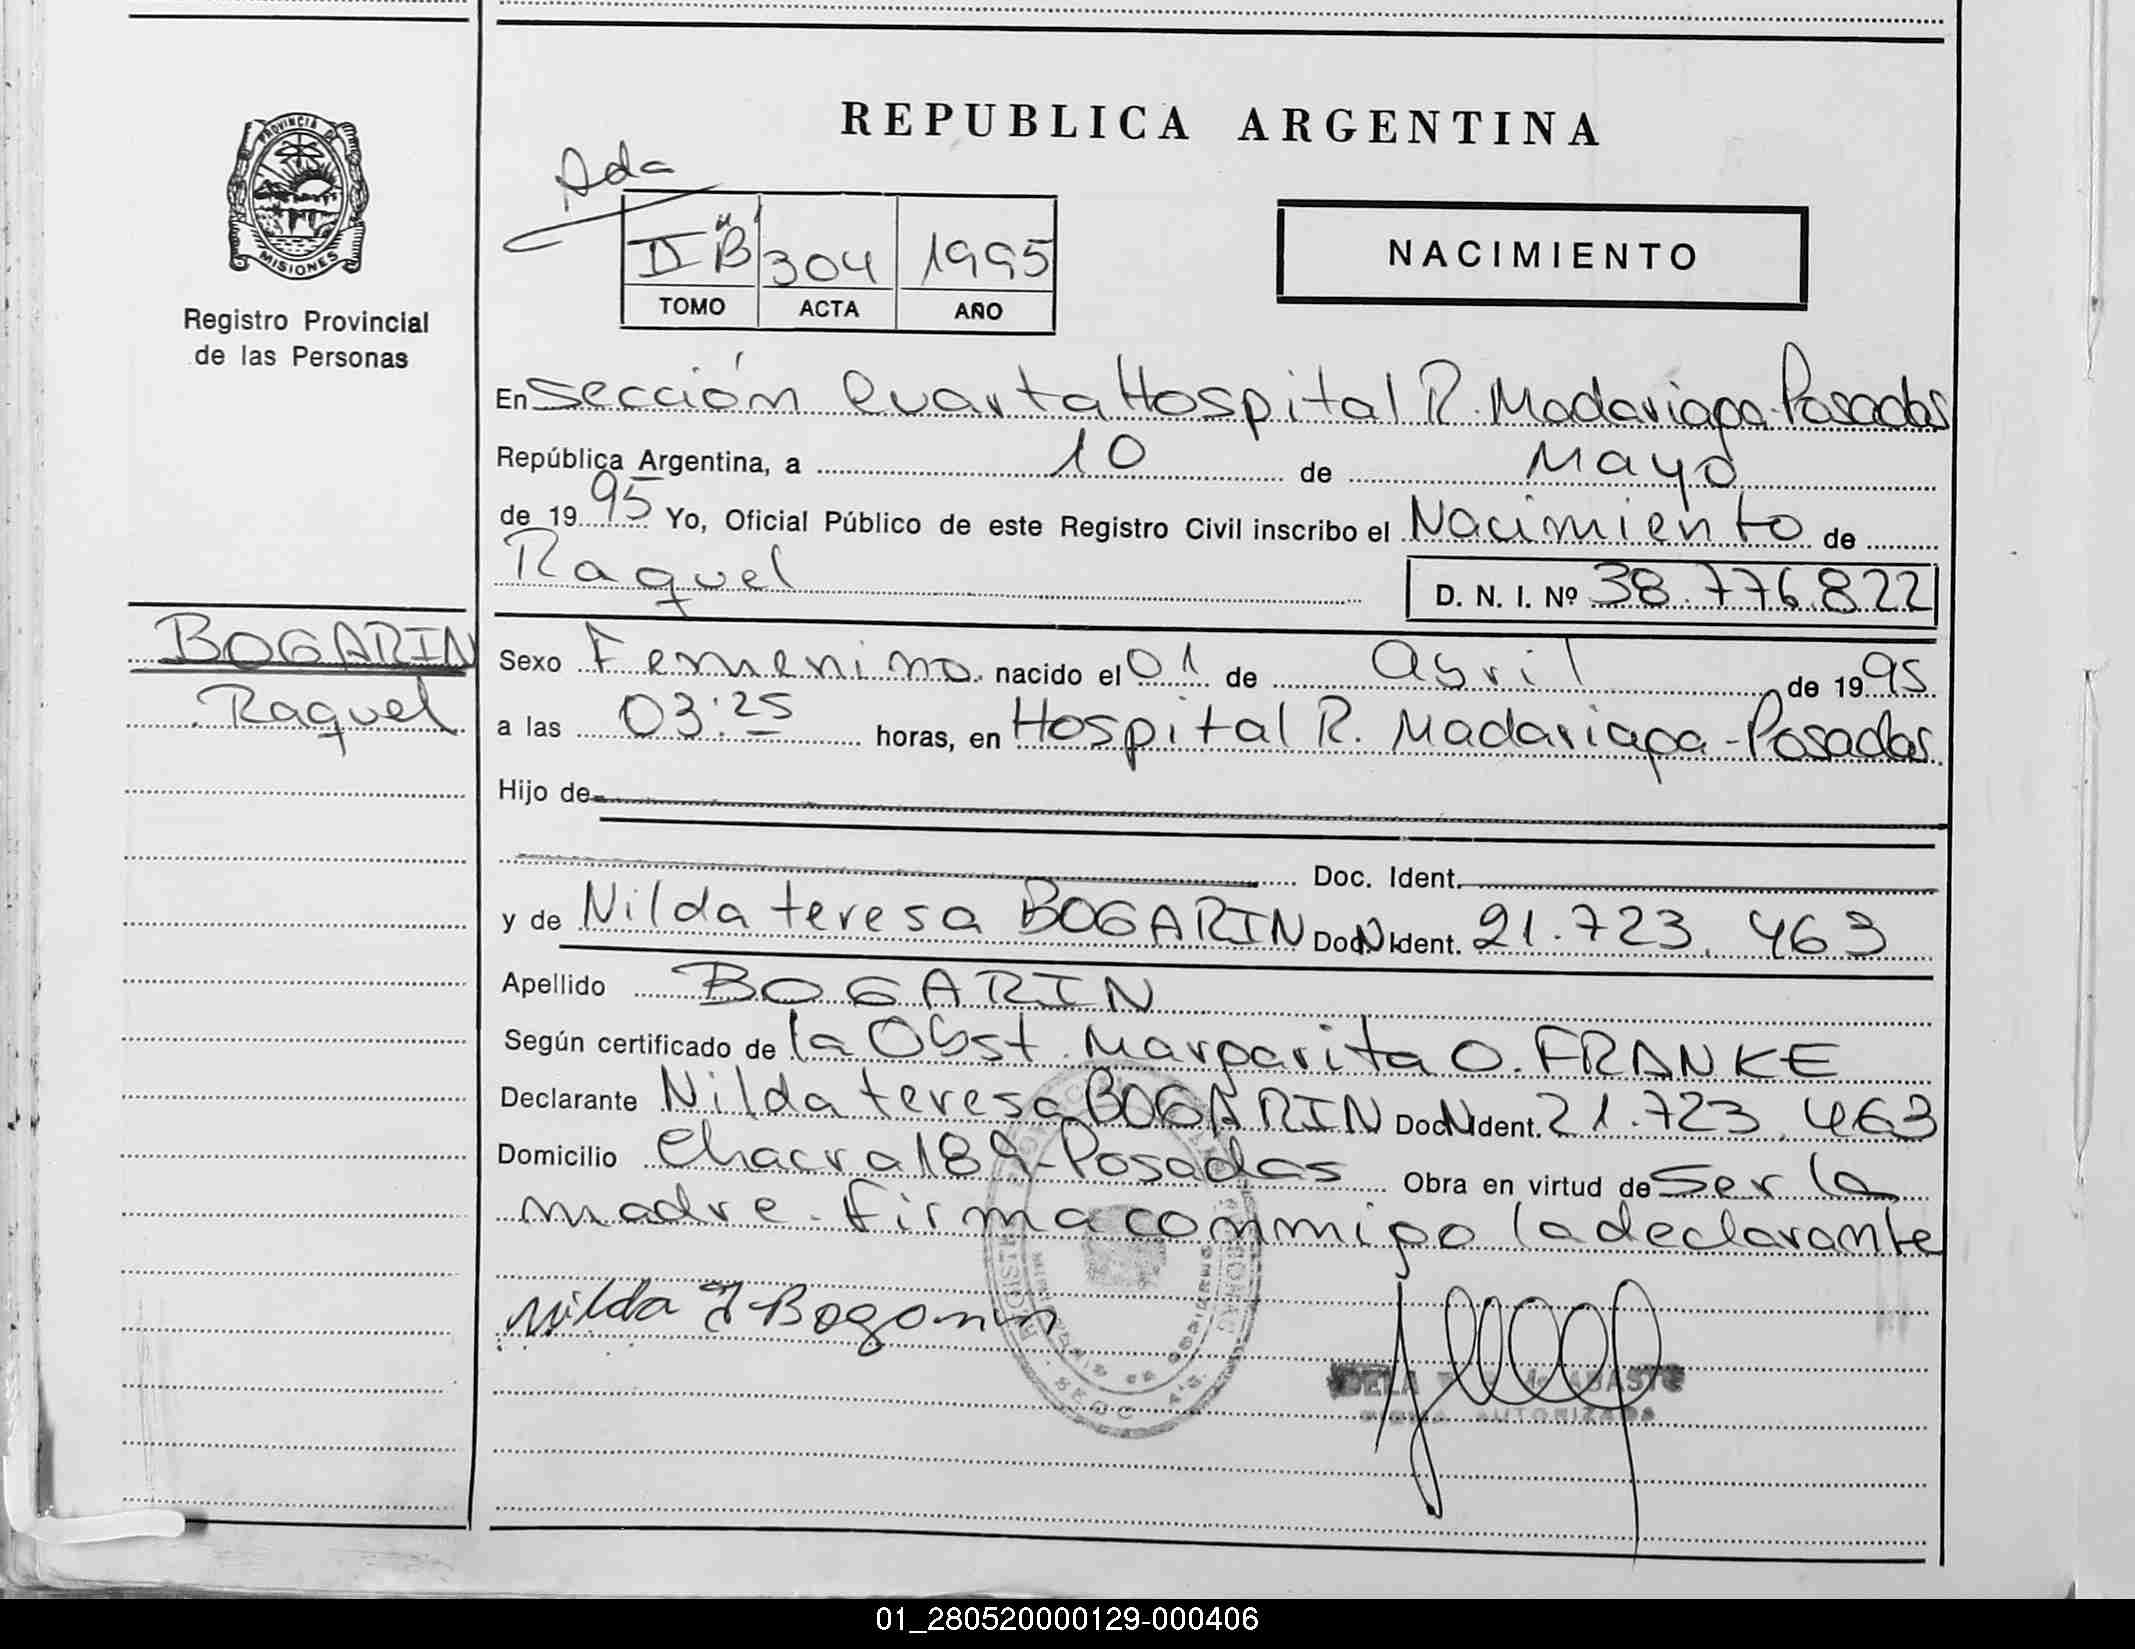 REPUBLICA ARGENTINA
PROVINCIA DE
MISIONES
Registro Provincial
de las Personas
Ada
II "B" 304 1995
TOMO ACTA AÑO
NACIMIENTO
En Sección Cuarta Hospital R. Madariaga-Posadas
República Argentina, a 10 de Mayo
de 1995 Yo, Oficial Público de este Registro Civil inscribo el Nacimiento de
Raquel D. N. I. Nº 38.776.822
BOGARIN
Raquel
Sexo Femenino nacido el 01 de abril de 1995
a las 03:25 horas, en Hospital R. Madariaga-Posadas.
Hijo de
Doc. Ident.
y de Nilda teresa BOGARIN Doc. Ident. 21.723.463
Apellido BOGARIN
Según certificado de la Obst. Margarita O. FRANKE
Declarante Nilda teresa BOGARIN Doc. Ident. 21.723.463
Domicilio Chacra 189-Posadas Obra en virtud de Ser la
madre. firma conmigo la declarante
Nilda T Bogarin
ABASTO
FIRMA AUTORIZADA
01_280520000129-000406